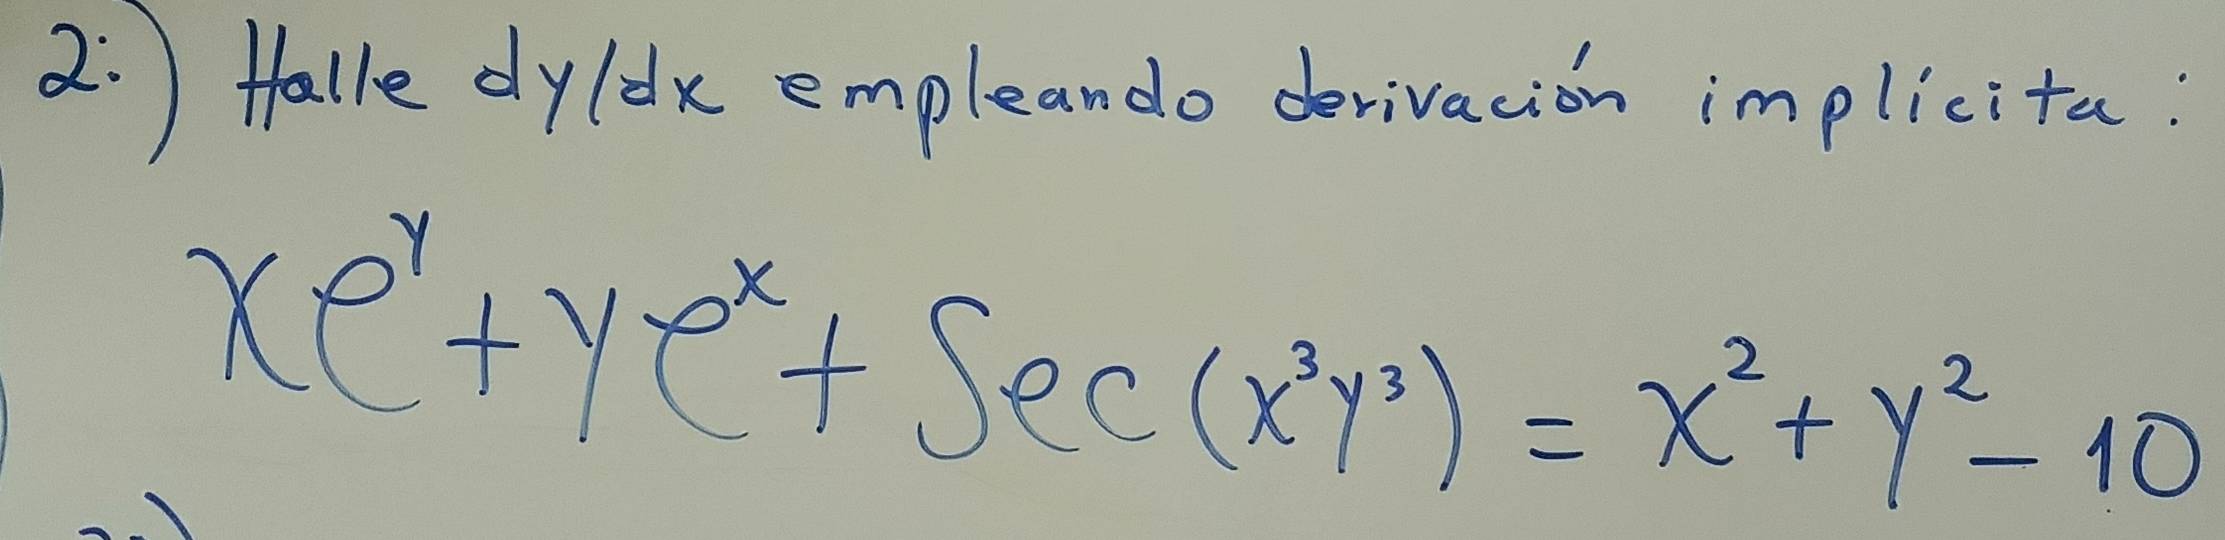 2:) Halle dy/dx empleando derivación implícita:
xe^y + ye^x + Sec(x³y³) = x² + y² - 10